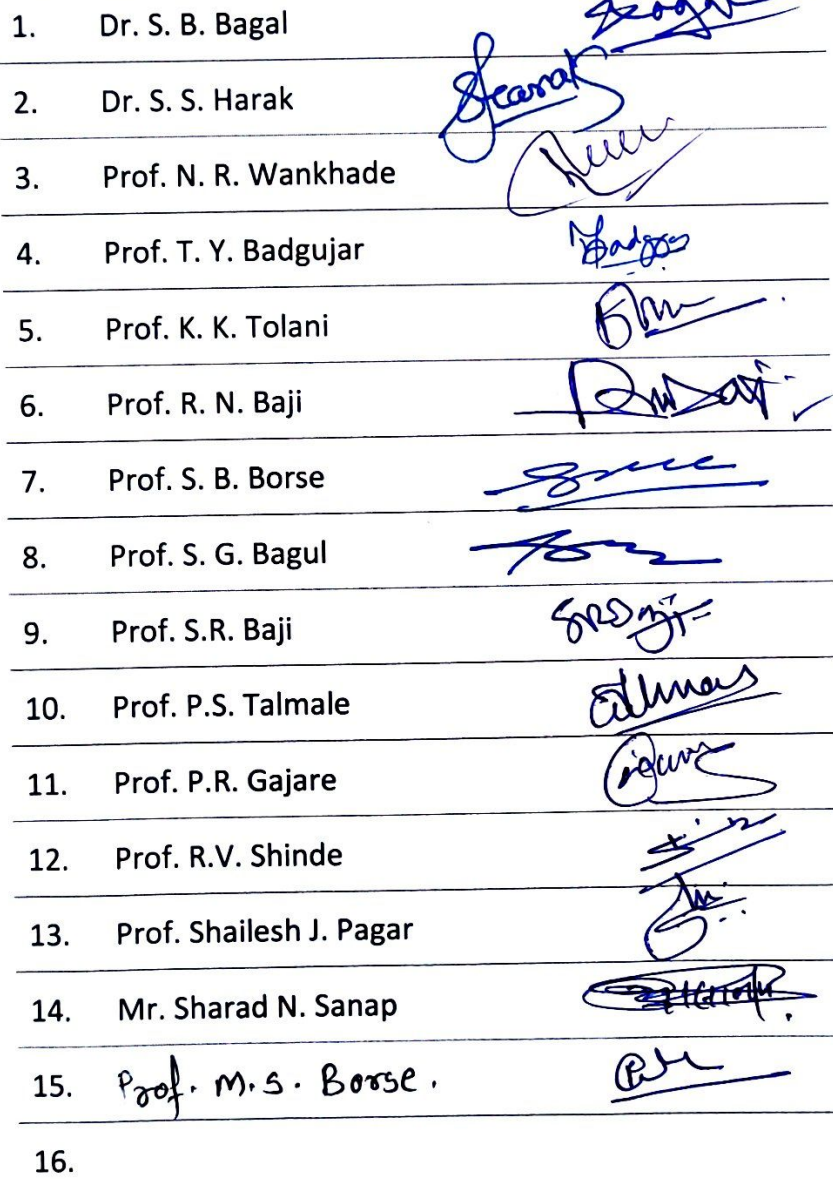 1. Dr. S. B. Bagal
2. Dr. S. S. Harak
3. Prof. N. R. Wankhade
4. Prof. T. Y. Badgujar
5. Prof. K. K. Tolani
6. Prof. R. N. Baji
7. Prof. S. B. Borse
8. Prof. S. G. Bagul
9. Prof. S.R. Baji
10. Prof. P.S. Talmale
11. Prof. P.R. Gajare
12. Prof. R.V. Shinde
13. Prof. Shailesh J. Pagar
14. Mr. Sharad N. Sanap
15. Prof. M. S. Borse.
16.